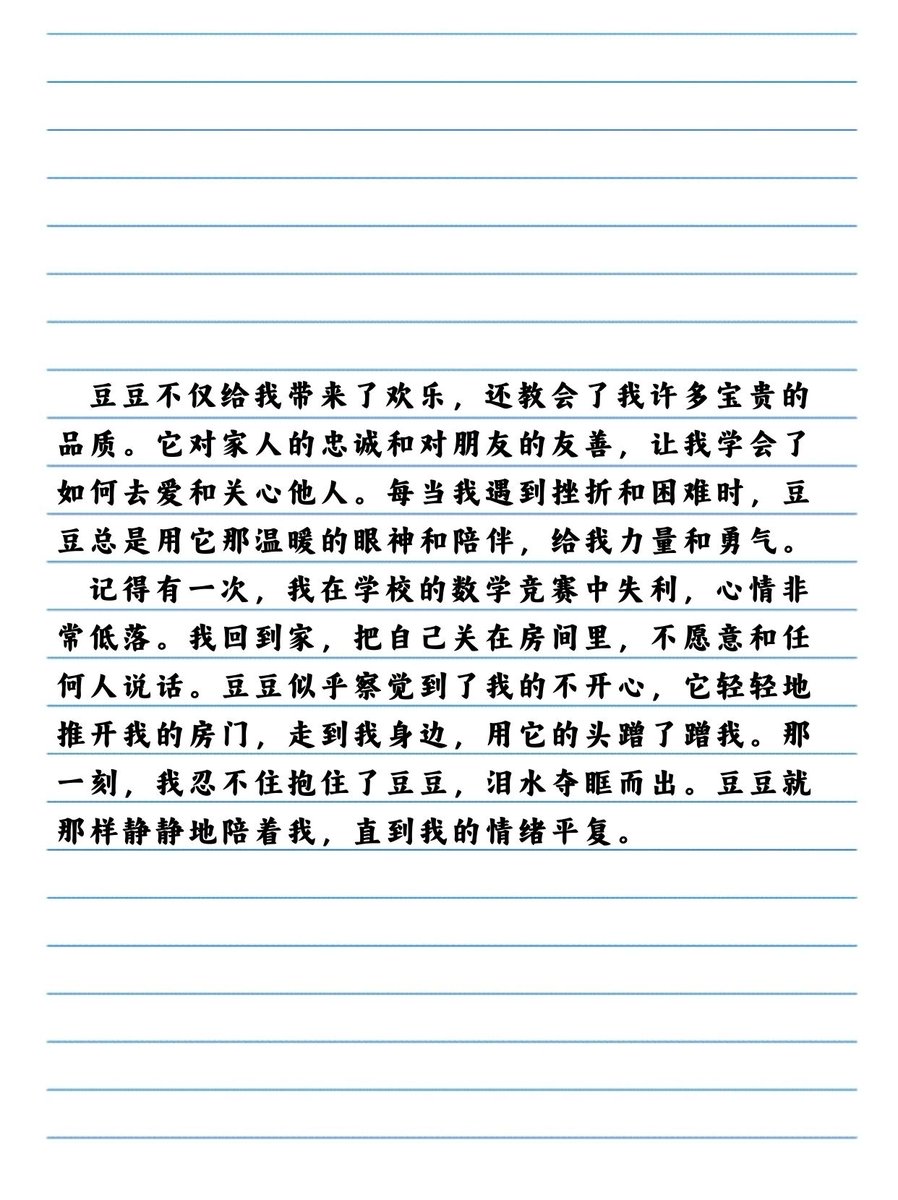 豆豆不仅给我带来了欢乐，还教会了我许多宝贵的
品质。它对家人的忠诚和对朋友的友善，让我学会了
如何去爱和关心他人。每当我遇到挫折和困难时，豆
豆总是用它那温暖的眼神和陪伴，给我力量和勇气。
记得有一次，我在学校的数学竞赛中失利，心情非
常低落。我回到家，把自己关在房间里，不愿意和任
何人说话。豆豆似乎察觉到了我的不开心，它轻轻地
推开我的房门，走到我身边，用它的头蹭了蹭我。那
一刻，我忍不住抱住了豆豆，泪水夺眶而出。豆豆就
那样静静地陪着我，直到我的情绪平复。